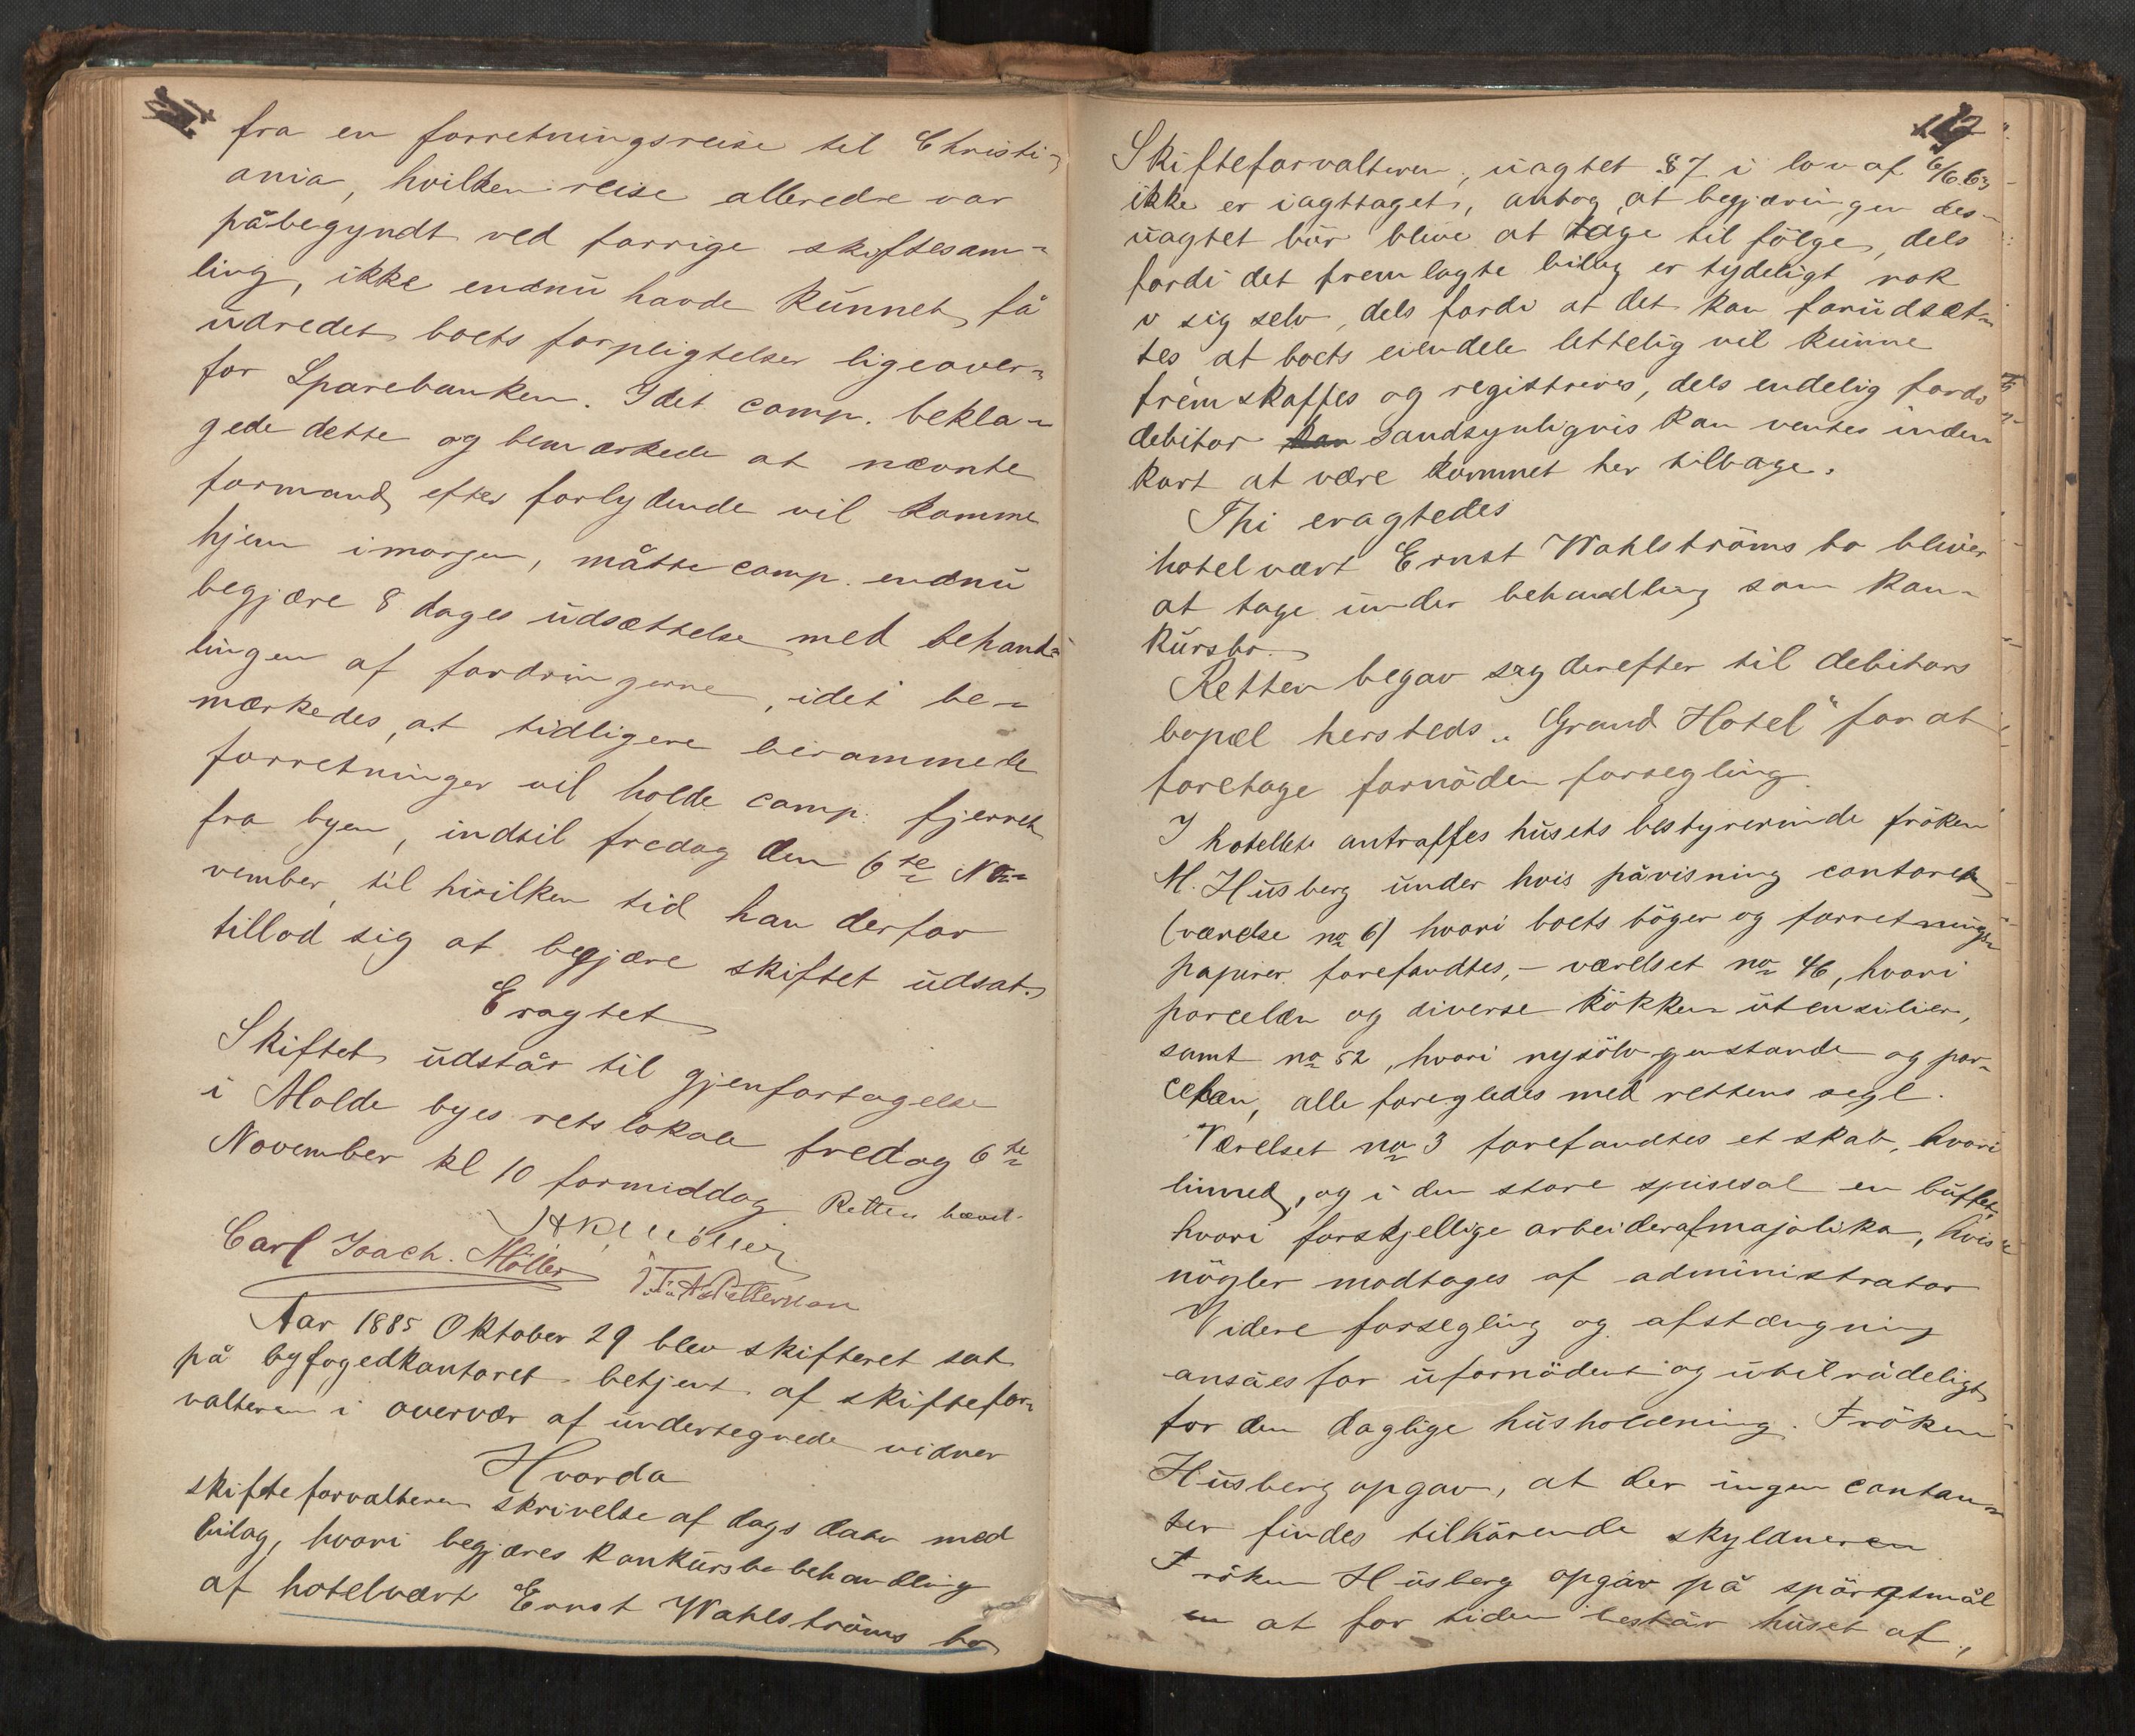 fra en forretningsreise til Christi-
ania, hvilken reise allerede var
påbegyndt ved forrige skiftesam-
ling, ikke endnu havde kunnet få
udredet boets forpligtelser ligeover-
for Sparebanken. Idet comp. bekla-
gede dette og bemærkede at nævnte
formand efter forlydende vil komme
hjem imorgen, måtte comp. endnu
begjære 8 dages udsættelse med behand-
lingen af fordringerne, idet be-
mærkedes, at tidligere berammede
forretninger vil holde comp. fjernet
fra byen, indtil fredag den 6te No-
vember, til hvilken tid han derfor
tillod sig at begjære skiftet udsat.
Eragtet
Skiftet udstår til gjenfortagelse
i Molde byes retslokale fredag 6te
November kl 10 formiddag Retten hævet.
Carl Joach. Möller
Aar 1885 Oktober 29 blev skifteret sat
på byfogedkontoret betjent af skiftefor-
valteren i overvær af undertegnede vidner
Hvorda
skifteforvalteren skrivelse af dags dato med
bilag, hvori begjæres konkursbobehandling
af hotelvært Ernst Wahlströms bo
117
Skifteforvalteren, uagtet §7 i lov af 6/6 63
ikke er iagttaget, antog at begjæringen des-
uagtet bür blive at tage til fölge, dels
fordi det fremlagte bilag er tydeligt nok
i sig selv, dels fordi at det kan forudsæt-
tes at boets eiendele lettelig vil kunne
fremskaffes og registreres, dels endelig fordi
debitor kan sandsynligvis kan ventes inden
kort at være kommet her tilbage.
Thi eragtedes
hotelvært Ernst Wahlströms bo bliver
at tage under behandling som kon-
kursbo.
Retten begav sig derefter til debitors
bopæl hersteds „Grand Hotel" for at
foretage fornöden forsegling.
I hotellet antraffes husets bestyrerinde fröken
M. Husberg under hvis påvisning contoret
(værelse no 6) hvori boets böger og forretnings-
papirer forefandtes, – værelset no 46, hvori
porcelæn og diverse kökken utensilier,
samt no 52, hvori nysölvgjenstande og por-
celæn, alle foregledes med rettens segl.
Værelset no 3 forefandtes et skab, hvori
linned, og i den store spisesal en buffet,
hvori forskjellige arbeider af majolika, hvis
nögler modtages af administrator
Videre forsegling og afstængning
ansåes for ufornödent og utilrådeligt
for den daglige husholdning. Fröken
Husberg opgav, at der ingen contan-
ter findes tilhörende skyldneren
Fröken Husberg opgav på spörgtmål
en at for tiden består huset af,